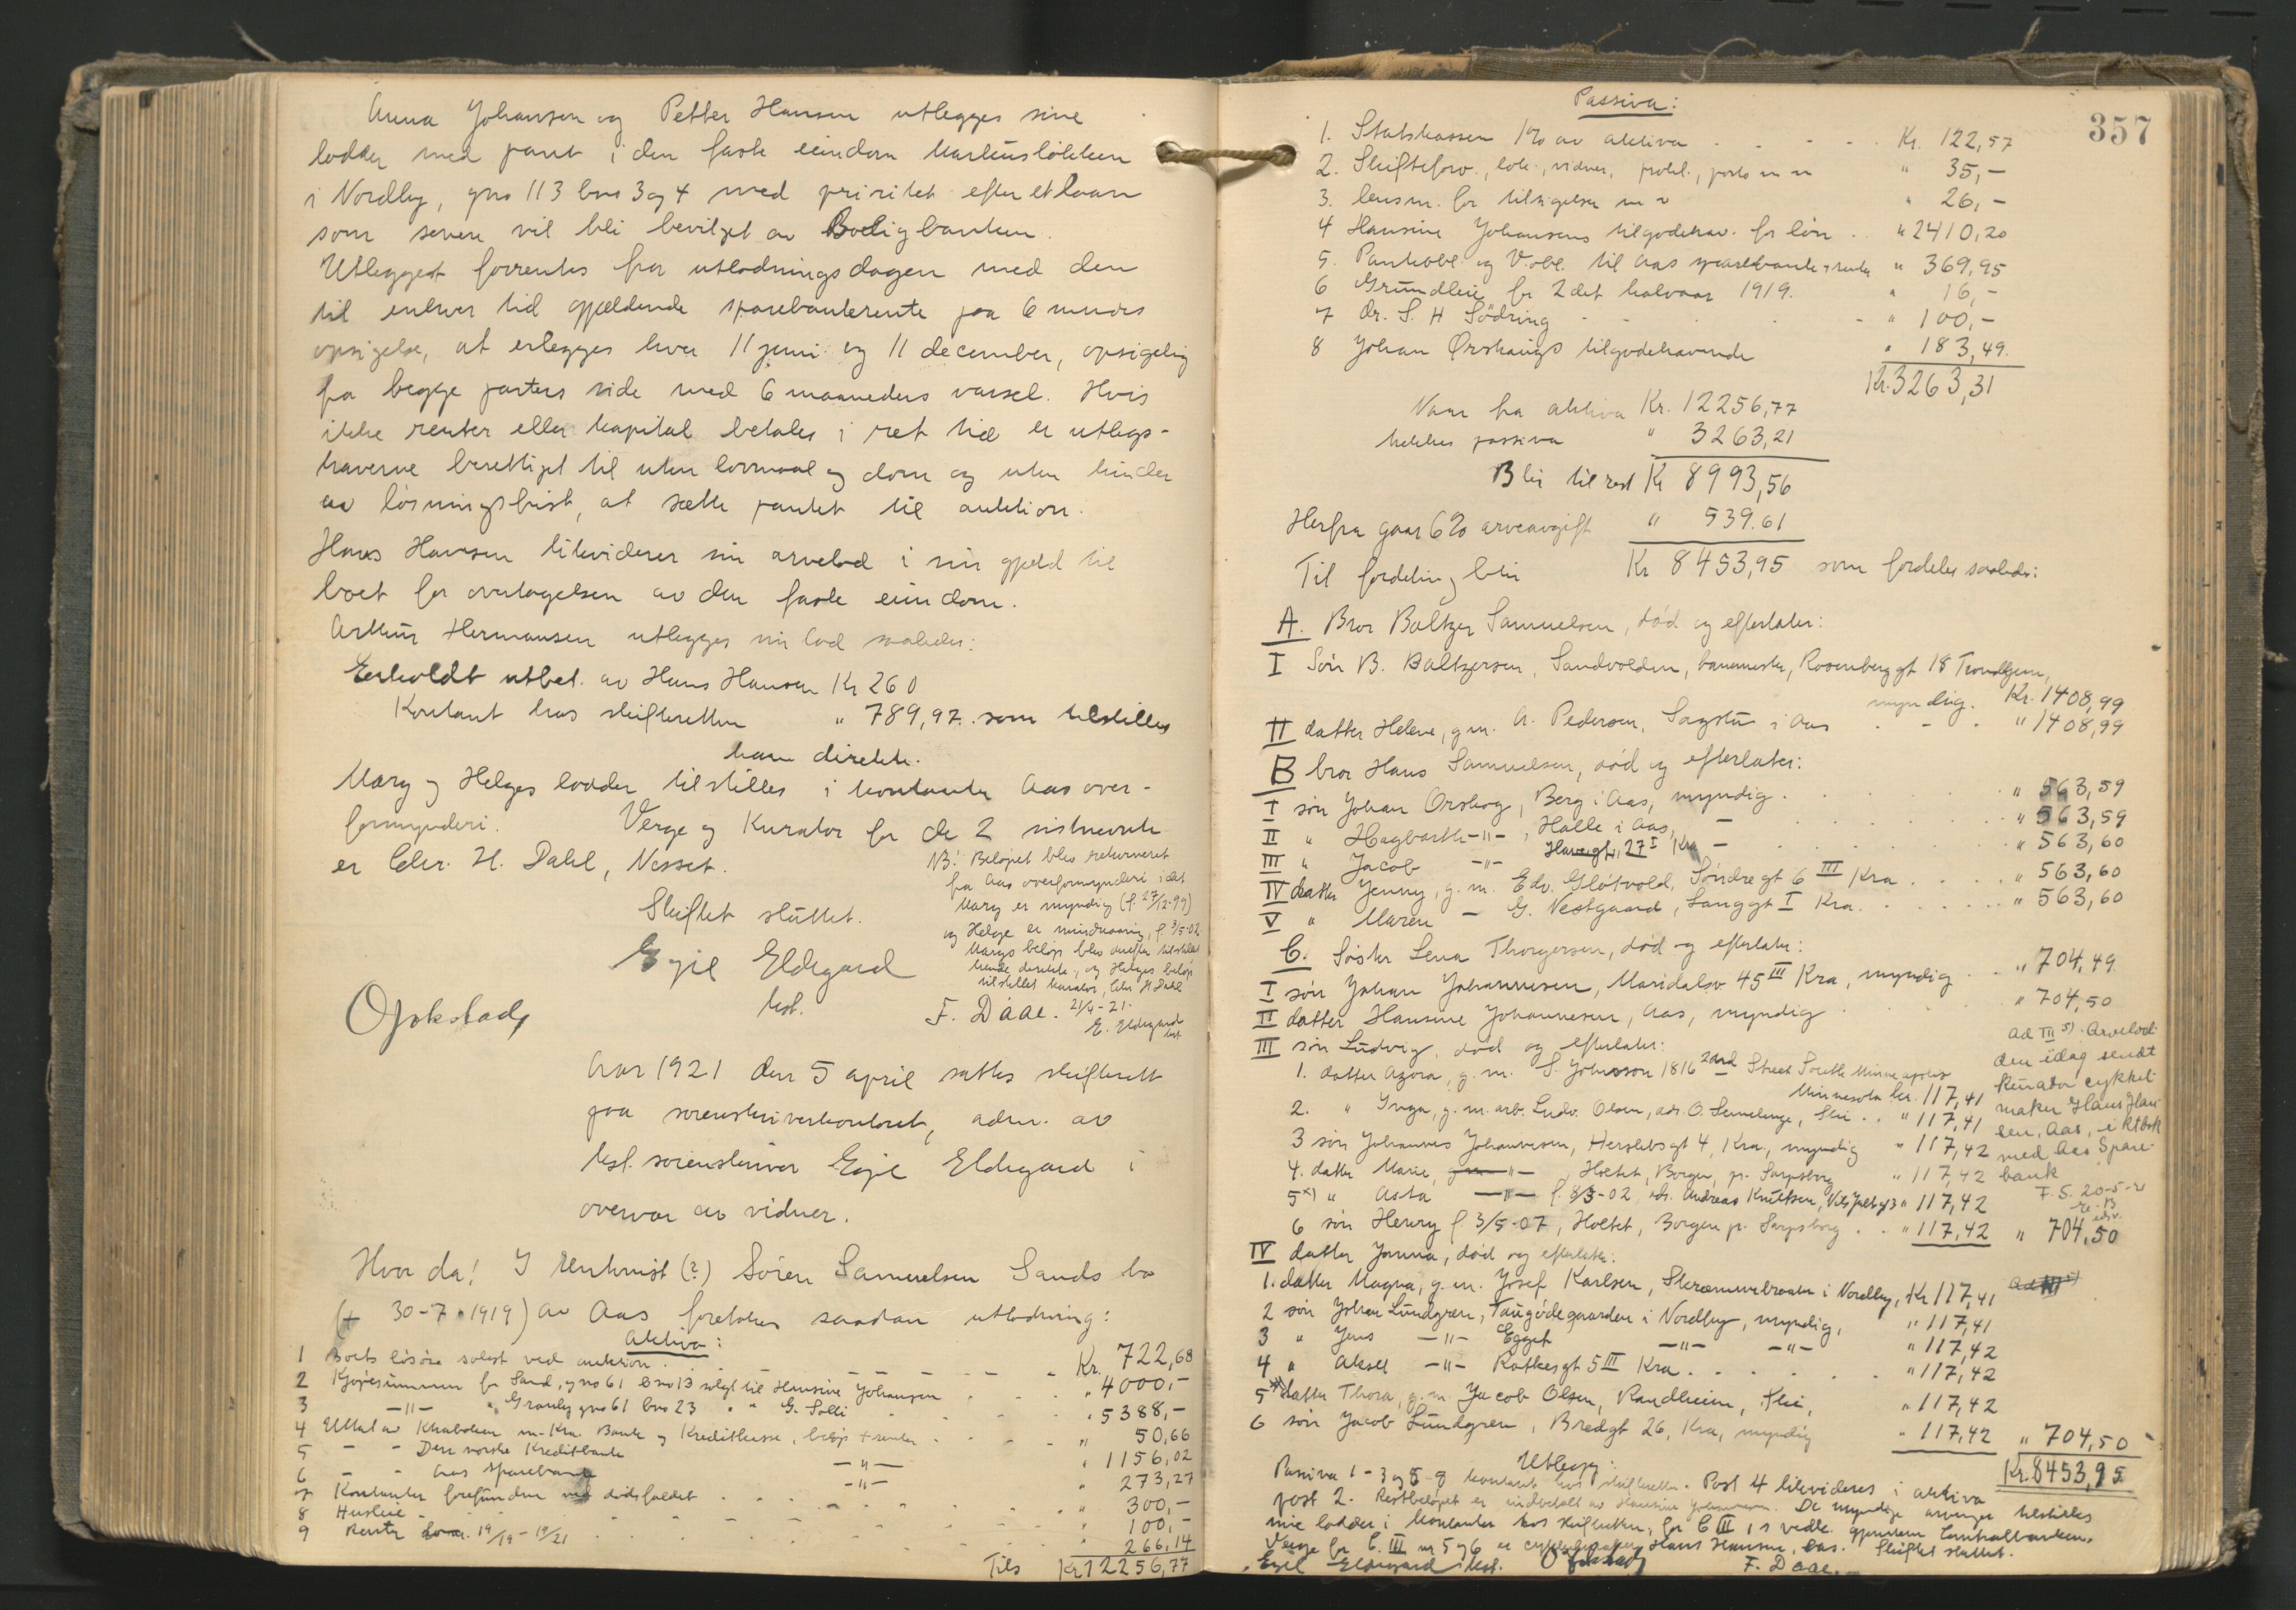 Anna Johansen og Petter Hansen utlegges sine
lodder med pant i den faste eiendom Markusløkken
i Nordby, gno 113 bno 3 og 4 med prioritet efter et laan
som senere vil bli bevilget av Boligbanken.
Utlegget forrentes fra utlodningsdagen med den
til enhver tid gjældende sparebankrente paa 6 mndrs
opsigelse, at erlegges hver 11 juni og 11 december, opsigelig
fra begge parters side med 6 maaneders varsel. Hvis
ikke renter eller kapital betales i ret tid er utlegs-
haverne berettiget til uten lovmaal og dom og uten hinder
av løsningsfrist, at sætte pantet til auktion.
Hans Hansen likviderer sin arvelod i sin gjæld til
boet for overtagelsen av den faste eiendom.
Arthur Hermansen utlegges sin lod saaledes:
Erholdt utbet. av Hans Hansen Kr 260
Kontant hos skifteretten " 789,97 som tilstilles
ham direkte.
Mary og Helges lodder tilstilles i kontanter Aas over-
formynderi. Verge og Kurator for de 2 sistnevnte
er lær. H. Dahl, Nesset.
NB! Beløpet blev returneret
fra Aas overformynderi idet
Mary er myndig (f. 27/12-99)
og Helge er mindreaarig, f 3/5-02.
Marys beløp blev derefter tilstillet
hende direkte, og Helges beløp
tilstillet kurator, lær H Dahl
21/4-21.
E. Eldegard
kst
Skiftet sluttet.
Egil Eldegard
kst.
Opkstad F. Daae.
Aar 1921 den 5 april sattes skifterett
paa sorenskriverkontoret, adm. av
kst. sorenskriver Egil Eldegard i
overvær av vidner.
Hvor da! I (?) Søren Samuelsen Sands bo
(+ 30-7-1919) av Aas foretokes saadan utlodning:
Aktiva:
1 Boets løsøre solgt ved auktion . . . Kr. 722,68
2 Kjøpesummen for Sand, gno 61 bno 13 solgt til Hansine Johansen . . " 4000,-
3 -"- " Granly gno 61 bno 23 " " G. Solli . . " 5388,-
4 Uttat av Kra. Bank og Kreditkasse, beløp + renter . . " 50,66
5 - - Den norske Kreditbank -"- " 1156,02
6 - - Aas sparebank -"- " 273,27
7 Kontanter forefunden ved dødsfaldet . . . " 300,-
8 Husleie . . . " 100,-
9 Renter 19/19 - 19/21 . . . " 266,14
Tils Kr 12256,77
357
Passiva:
1. Statskassen 1% av aktiva . . . Kr. 122,57
2. Skifteforv., lok., vidner, protok., porto m m " 35,-
3. lensm. for tilsigelser m v " 26,-
4 Hansine Johansens tilgodehav. for løn . " 2410,20
5. Panteobl. og V.obl. til Aas sparebank + renter " 369,95
6 Grundleie for 2det halvaar 1919. " 16,-
7 dr. S. H Sødring . . . " 100,-
8 Johan Ørshaugs tilgodehavende " 183,49.
Kr. 3263,31
Naar fra aktiva Kr. 12256,77
trekkes passiva " 3263,21
Blir til rest Kr 8993,56
Herfra gaar 6% arveavgift " 539.61
Til fordeling blir Kr 8453,95 som fordeles saaledes:
A. Bror Baltzer Samuelsen, død og efterlater:
I Søn B. Baltzersen, Sandvolden, banemester, Rosenborggt 18 Trondhjem,
myndig. Kr. 1408,99
II datter Helene, g.m. A. Pedersen, Sagstu i Aas . . . " 1408,99
B bror Hans Samuelsen, død og efterlater:
I søn Johan Orshog, Berg i Aas, myndig . . . " 563,59
II " Hagbarth -"- , Halle i Aas, - . . . " 563,59
III " Jacob -"- 27 I Kra - . . . " 563,60
IV datter Jenny, g.m. Edv. Gløtvold, Søndregt 6 III Kra . . . " 563,60
V " Maren - G. Vestgaard, Langgt I Kra. . . . " 563,60
C. Søster Lena Thorgersen, død og efterlater:
I søn Johan Johannesen, Maridalsv 45 III Kra, myndig . . " 704,49
II datter Hansine Johannesen, Aas, myndig . . . " 704,50
III søn Ludvig, død og efterlater:
1. datter Azora, g.m. S. Johnson 1816 2and Street South Minneapolis
Minnesota kr. 117,41
2. " Inga, g.m. arb. Ludv. Olsen, adr. O. Semelenge, Ski . . " 117,41
3 søn Johannes Johannesen, Herslebsgt 4, Kra, myndig " 117,42
4. datter Marie, -"- , Holtet, Borgen, pr. Sarpsborg " 117,42
5 x) " Asta -"- f. 3/3-02, adr. Andreas Knutsen, " 117,42
6 søn Henry f 3/5-07, Holtet, Borgen pr. Sarpsborg . . " 117,42 " 704,50
ad III 5) Arvelod-
den idag sendt
kurator cykkel-
maker Hans Han-
sen, Aas, i ktbok
med Aas Spare-
bank
F.S. 20-5-21
IV datter Janna, død og efterlater:
1. datter Magna, g.m. Josef Karlsen, Skrænnerbraaten i Nordby, Kr 117,41
2 søn Johan Lundgren, Taugødegaarden i Nordby, myndig, " 117,41
3 " Jens -"- Egget -"- -"- " 117,42
4 " Aksel -"- Ratkesgt 5 III Kra . . . " 117,42
5 datter Thora, g.m. Jacob Olsen, Randheim, Ski, " 117,42
6 søn Jacob Lundgren, Bredgt 26, Kra, myndig " 117,42 " 704,50
Kr. 8453,95
Utlegg:
Passiva 1-3 og 5-8 kontant hos skifteretten. Post 4 likvideres i aktiva
post 2. Restbeløpet er indbetalt av Hansine Johannesen. De myndige arvinger tilstilles
sine lodder i kontanter hos skifteretten, for C III 1 's vedk. gjennem Centralbanken.
Verge for C. III nr 5 og 6 er cykkelmaker Hans Hansen, Aas. Skiftet sluttet.
Egil Eldegard kst. Opkstad F. Daae.